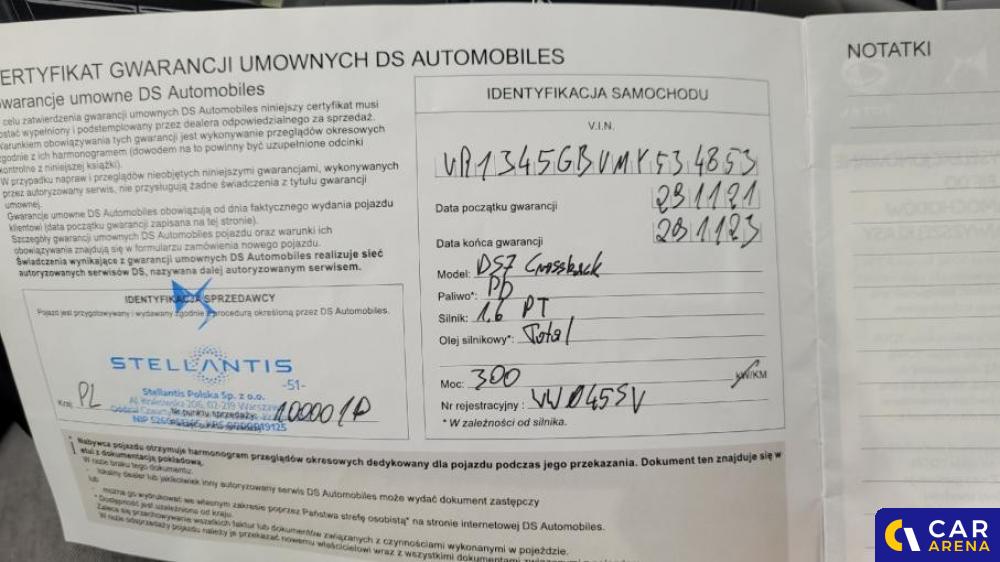 ERTYFIKAT GWARANCJI UMOWNYCH DS AUTOMOBILES
warancje umowne DS Automobiles
celu zatwierdzenia gwarancji umownych DS Automobiles niniejszy certyfikat musi
ostać wypełniony i podstemplowany przez dealera odpowiedzialnego za sprzedaż.
Warunkiem obowiązywania tych gwarancji jest wykonywanie przeglądów okresowych
zgodnie z ich harmonogramem (dowodem na to powinny być uzupełnione odcinki
kontrolne z niniejszej książki).
W przypadku napraw i przeglądów nieobjętych niniejszymi gwarancjami, wykonywanych
przez autoryzowany serwis, nie przysługują żadne świadczenia z tytułu gwarancji
umownej.
Gwarancje umowne DS Automobiles obowiązują od dnia faktycznego wydania pojazdu
klientowi (data początku gwarancji zapisana na tej stronie).
Szczegóły gwarancji umownych DS Automobiles pojazdu oraz warunki ich
obowiązywania znajdują się w formularzu zamówienia nowego pojazdu.
Świadczenia wynikające z gwarancji umownych DS Automobiles realizuje sieć
autoryzowanych serwisów DS, nazywana dalej autoryzowanym serwisem.
IDENTYFIKACJA SPRZEDAWCY
Pojazd jest przygotowywany i wydawany zgodnie z procedurą określoną przez DS Automobiles.
STELLANTIS
-51-
Stellantis Polska Sp. z o.o.
Al. Krakowska 206, 02-219 Warszawa
Kraj: PL
Nr punktu sprzedaży: 100001P
IDENTYFIKACJA SAMOCHODU
V.I.N.
VR1345GBVMY534853
Data początku gwarancji 291121
Data końca gwarancji 281123
Model: DS7 Crossback
Paliwo*: Pb
Silnik: 1,6 PT
Olej silnikowy*: Total
Moc: 300 kW/KM
Nr rejestracyjny: WW045SV
* W zależności od silnika.
* Nabywca pojazdu otrzymuje harmonogram przeglądów okresowych dedykowany dla pojazdu podczas jego przekazania. Dokument ten znajduje się w
etui z dokumentacją pokładową.
W razie braku tego dokumentu:
- lokalny dealer lub jakikolwiek inny autoryzowany serwis DS Automobiles może wydać dokument zastępczy
lub
- można go wydrukować we własnym zakresie poprzez Państwa strefę osobistą* na stronie internetowej DS Automobiles.
* Dostępność jest uzależniona od kraju.
Zaleca się przechowywanie wszelkich faktur lub dokumentów związanych z czynnościami wykonywanymi w pojeździe.
W razie odsprzedaży pojazdu należy je przekazać nowemu właścicielowi wraz z wszystkimi dokumentami
NOTATKI
CAR
ARENA